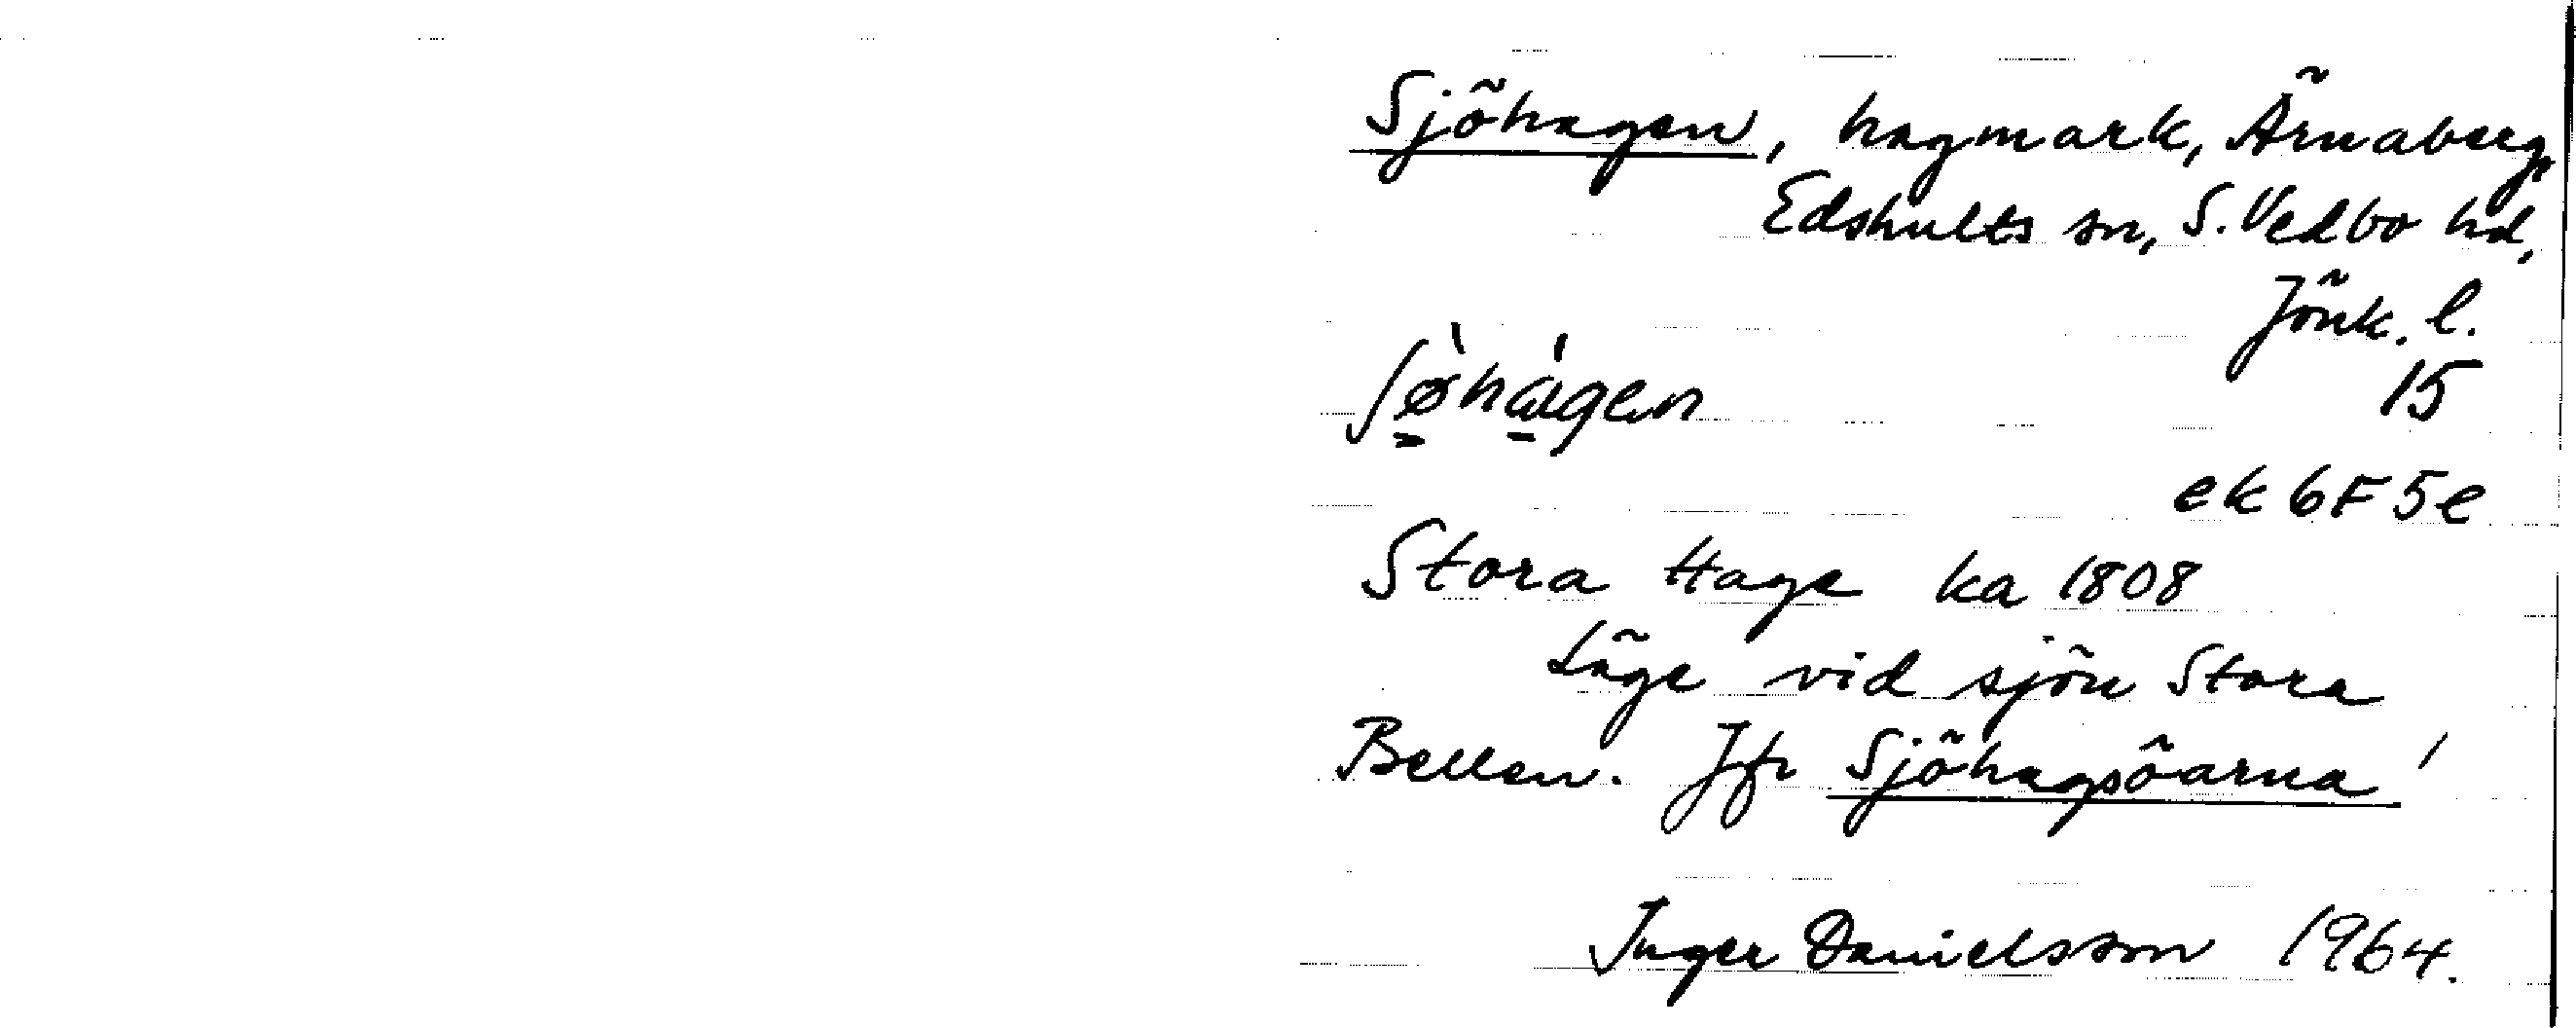 Sjöhagen, hagmark, Ärnaberg,
Edshults sn, S. Vedbo hd,
Jönk. l.
ʃø̀hágen
15
ek 6F5e
Stora Hage ka 1808
Läge vid sjön Stora
Bellen. Jfr Sjöhagsöarna!
Inger Danielsson 1964.